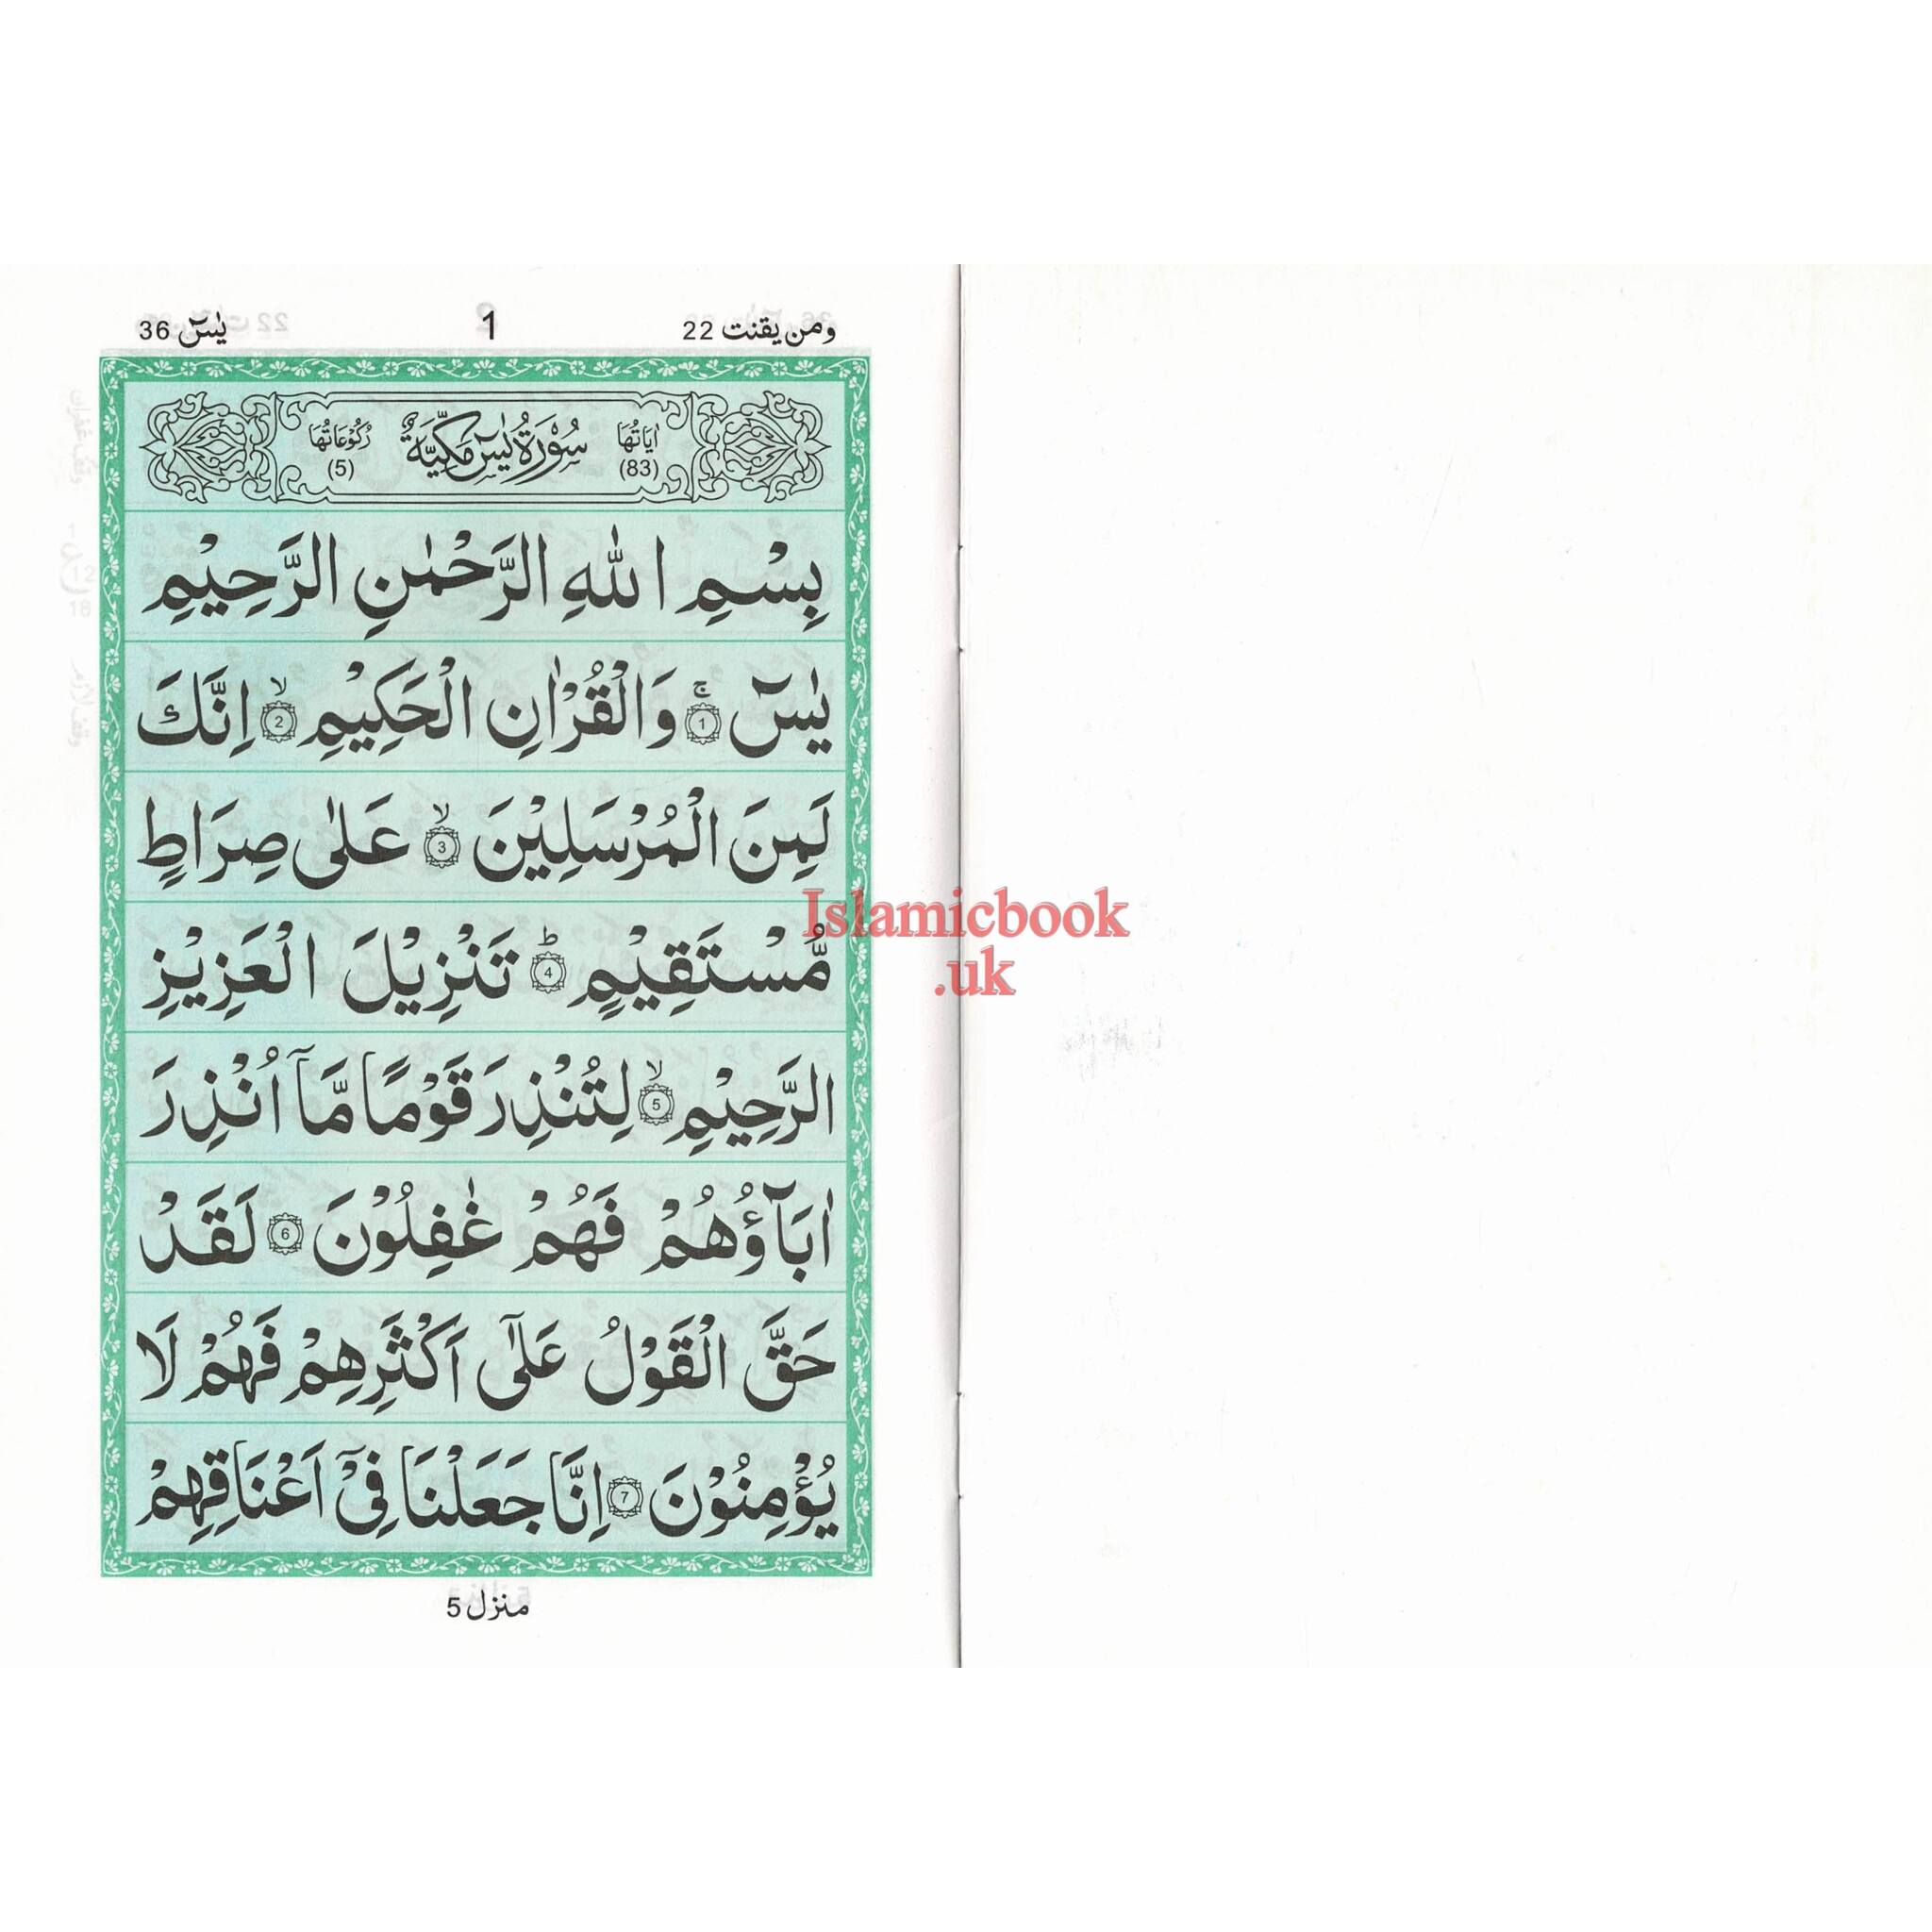 ومن يقنت 22
1
يٰسٓ 36
اٰيَاتُهَا (83)
سُوْرَةُ يٰسٓ مَكِّيَّةٌ
رُكُوْعَاتُهَا (5)
بِسْمِ اللّٰهِ الرَّحْمٰنِ الرَّحِيْمِ
يٰسٓ ۚ 1 وَالْقُرْاٰنِ الْحَكِيْمِ ۙ 2 اِنَّكَ
لَمِنَ الْمُرْسَلِيْنَ ۙ 3 عَلٰى صِرَاطٍ
مُّسْتَقِيْمٍ ؕ 4 تَنْزِيْلَ الْعَزِيْزِ
الرَّحِيْمِ ۙ 5 لِتُنْذِرَ قَوْمًا مَّاۤ اُنْذِرَ
اٰبَآؤُهُمْ فَهُمْ غٰفِلُوْنَ 6 لَقَدْ
حَقَّ الْقَوْلُ عَلٰٓى اَكْثَرِهِمْ فَهُمْ لَا
يُؤْمِنُوْنَ 7 اِنَّا جَعَلْنَا فِيْٓ اَعْنَاقِهِمْ
منزل 5
Islamicbook
.uk